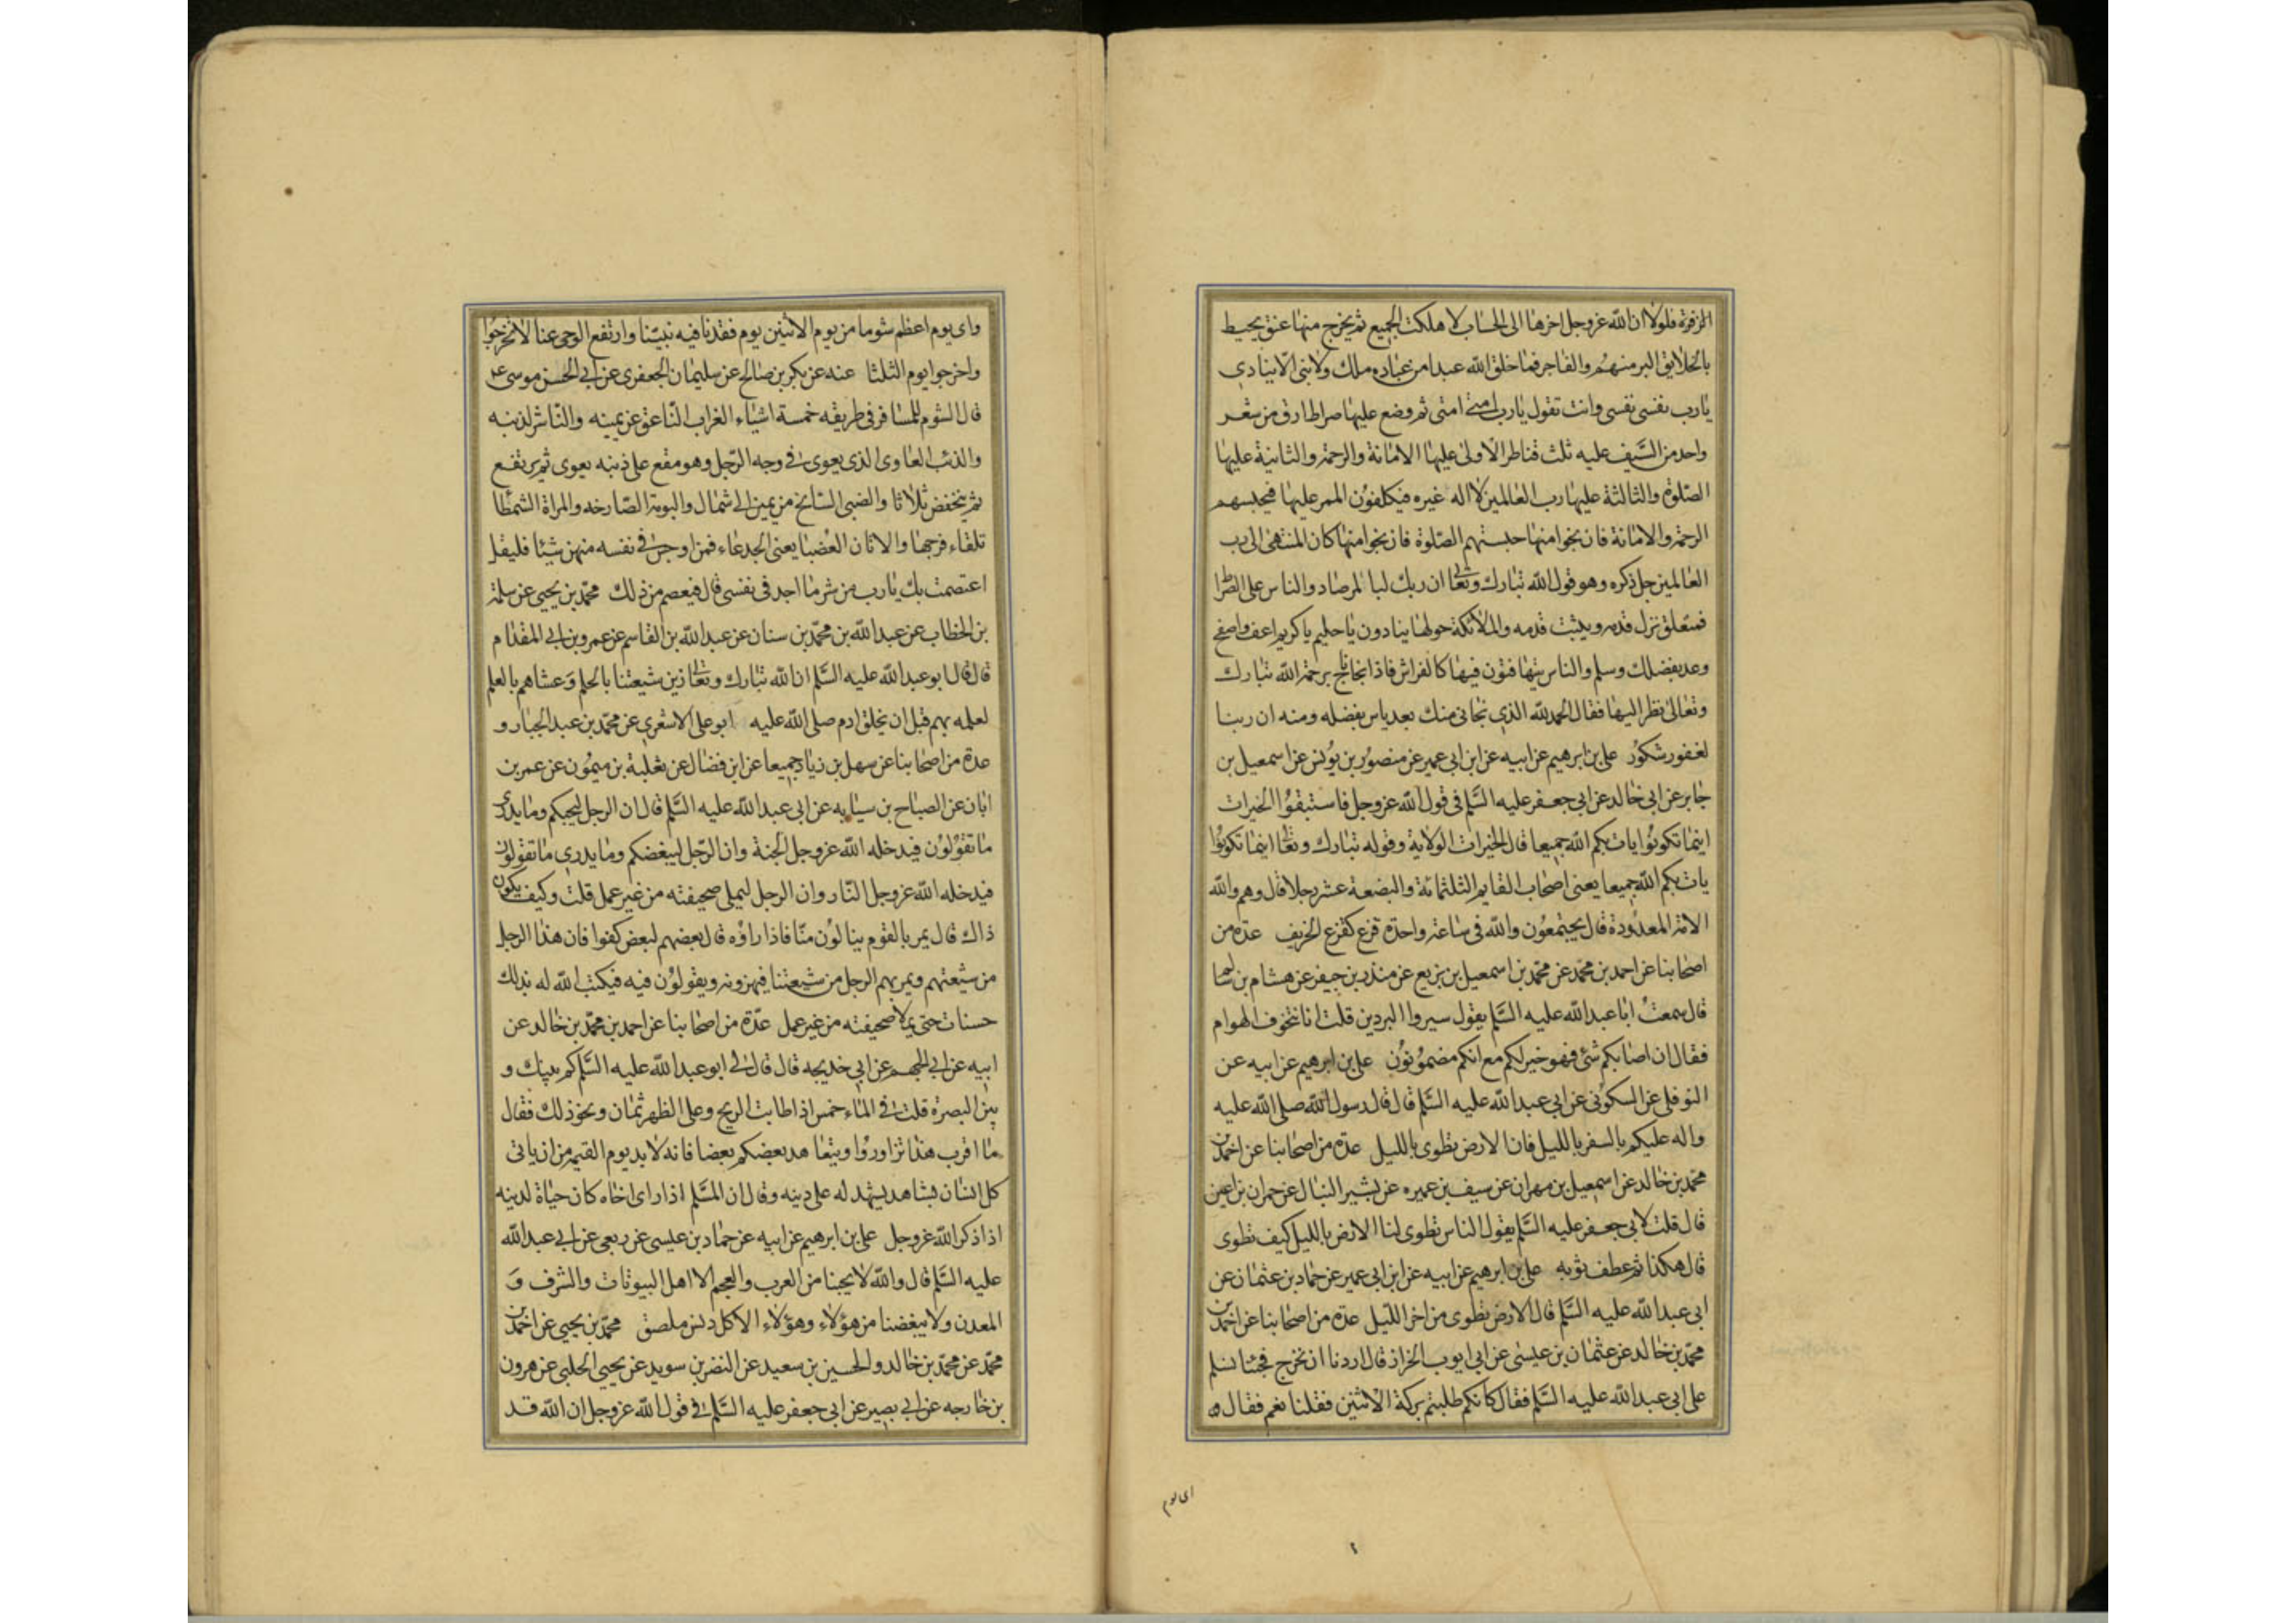 الزفرة فلولا ان الله عز وجل اخرها الى الحساب لاهلكت الجميع ثم يخرج منها عنق يحيط
بالخلايق البر منهم والفاجر فما خلق الله عبدا من عباده ملك ولا نبى الا ينادي
يا رب نفسى نفسى وانت تقول يا رب امتى امتى ثم وضع عليها صراط ارق من شعر
واحد من السيف عليه ثلث قناطر الاولى عليها الامانة والرحمة والثانية عليها
الصلوة والثالثة عليها رب العالمين لا اله غيره فيكلفون الممر عليها فيحبسهم
الرحمة والامانة فان نجوا منها حبستهم الصلوة فان نجوا منها كان المنتهى الى رب
العالمين جل ذكره وهو قول الله تبارك وتعالى ان ربك لبا لمرصاد والناس على الصرا
فمتعلق تزل قدمه ويثبت قدمه والملائكة حولها ينادون يا حليم يا كريم اعف واصفح
وعد بفضلك وسلم والناس يتهافتون فيها كالفراش فاذا نجا ناج برحمة الله تبارك
وتعالى نظر اليها فقال الحمد لله الذي نجانى منك بعد ياس بفضله ومنه ان ربنا
لغفور شكور على بن ابرهيم عن ابيه عن ابن ابى عمير عن منصور بن يونس عن اسمعيل بن
جابر عن ابى خالد عن ابى جعفر عليه السلم فى قول الله عز وجل فاستبقوا الخيرات
اينما تكونوا يات بكم الله جميعا قال الخيرات الولاية وقوله تبارك وتعالى اينما تكونوا
يات بكم الله جميعا يعنى اصحاب القايم الثلثمائة والبضعة عشر رجلا قال وهم والله
الامة المعدودة قال يجتمعون والله فى ساعة واحدة قزع كقزع الخريف عدة من
اصحابنا عن احمد بن محمد عن محمد بن اسمعيل بن بزيع عن منذر بن جيفر عن هشام بن
قال سمعت ابا عبد الله عليه السلم يقول سيروا البردين قلت انا نتخوف الهوام
فقال ان اصابكم شئ فهو خير لكم مع انكم مضمونون على بن ابرهيم عن ابيه عن
النوفلى عن السكونى عن ابى عبد الله عليه السلم قال قال رسول الله صلى الله عليه
واله عليكم بالسفر بالليل فان الارض تطوى بالليل عدة من اصحابنا عن احمد بن
محمد بن خالد عن اسمعيل بن مهران عن سيف بن عميره عن بشير النبال عن حمران بن اعين
قال قلت لابى جعفر عليه السلم يقول الناس تطوى لنا الارض بالليل كيف تطوى
قال هكذا ثم عطف ثوبه على بن ابرهيم عن ابيه عن ابن ابى عمير عن حماد بن عثمان عن
ابى عبد الله عليه السلم قال الارض تطوى من اخر الليل عدة من اصحابنا عن احمد بن
محمد بن خالد عن عثمان بن عيسى عن ابى ايوب الخراز قال اردنا ان نخرج فجئنا نسلم
على ابى عبد الله عليه السلم فقال كانكم طلبتم بركة الاثنين فقلنا نعم فقال و
اى يوم
واى يوم اعظم شوما من يوم الاثنين يوم فقدنا فيه نبينا وارتفع الوحى عنا لا تخرجوا
واخرجوا يوم الثلثا عنه عن بكر بن صالح عن سليمان الجعفرى عن ابى الحسن موسى ع
قال الشوم للمسافر فى طريقه خمسة اشياء الغراب الناعق عن يمينه والناشر لذنبه
والذئب العاوى الذى يعوى فى وجه الرجل وهو مقع على ذنبه يعوى ثم يرتفع
ثم ينخفض ثلاثا والضبى السانح من يمين الى شمال والبومة الصارخه والمراة الشمطا
تلقاء فرجها والاتان العضبا يعنى الجدعاء فمن اوجس فى نفسه منهن شيئا فليقل
اعتصمت بك يا رب من شر ما اجد فى نفسى قال فيعصم من ذلك محمد بن يحيى عن سلمة
بن الخطاب عن عبد الله بن محمد بن سنان عن عبد الله بن القاسم عن عمرو بن ابى المقدام
قال قال ابو عبد الله عليه السلم ان الله تبارك وتعالى زين شيعتنا بالحلم وغشاهم بالعلم
لعلمه بهم قبل ان يخلق ادم صلى الله عليه ابو على الاشعري عن محمد بن عبد الجبار و
عدة من اصحابنا عن سهل بن زياد جميعا عن ابن فضال عن ثعلبة بن ميمون عن عمر بن
ابان عن الصباح بن سيابه عن ابى عبد الله عليه السلم قال ان الرجل ليحبكم وما يدرى
ما تقولون فيدخله الله عز وجل الجنة وان الرجل ليبغضكم وما يدري ما تقولون
فيدخله الله عز وجل النار وان الرجل ليملى صحيفته من غير عمل قلت وكيف يكون
ذاك قال يمر بالقوم ينالون منا فاذا راؤه قال بعضهم لبعض كفوا فان هذا الرجل
من شيعتهم ويمر بهم الرجل من شيعتنا فيهزونه ويقولون فيه فيكتب الله له بذلك
حسنات حتى يملا صحيفته من غير عمل عدة من اصحابنا عن احمد بن محمد بن خالد عن
ابيه عن ابى الجهم عن ابى خديجه قال قال لى ابو عبد الله عليه السلم كم بينك و
بين البصرة قلت فى الماء خمس اذا طابت الريح وعلى الظهر ثمان ونحو ذلك فقال
ما اقرب هذا تزاوروا ويتعاهد بعضكم بعضا فانه لا بد يوم القيمة من ان ياتى
كل انسان بشاهد يشهد له على دينه وقال ان المسلم اذا راى اخاه كان حياة لدينه
اذا ذكر الله عز وجل على بن ابرهيم عن ابيه عن حماد بن عيسى عن ربعى عن ابى عبد الله
عليه السلم قال والله لا يحبنا من العرب والعجم الا اهل البيوتات والشرف و
المعدن ولا يبغضنا من هؤلاء وهؤلاء الا كل دنس ملصق محمد بن يحيى عن احمد بن
محمد عن محمد بن خالد والحسين بن سعيد عن النضر بن سويد عن يحيى الحلبى عن هرون
بن خارجه عن ابى بصير عن ابى جعفر عليه السلم فى قول الله عز وجل ان الله قد